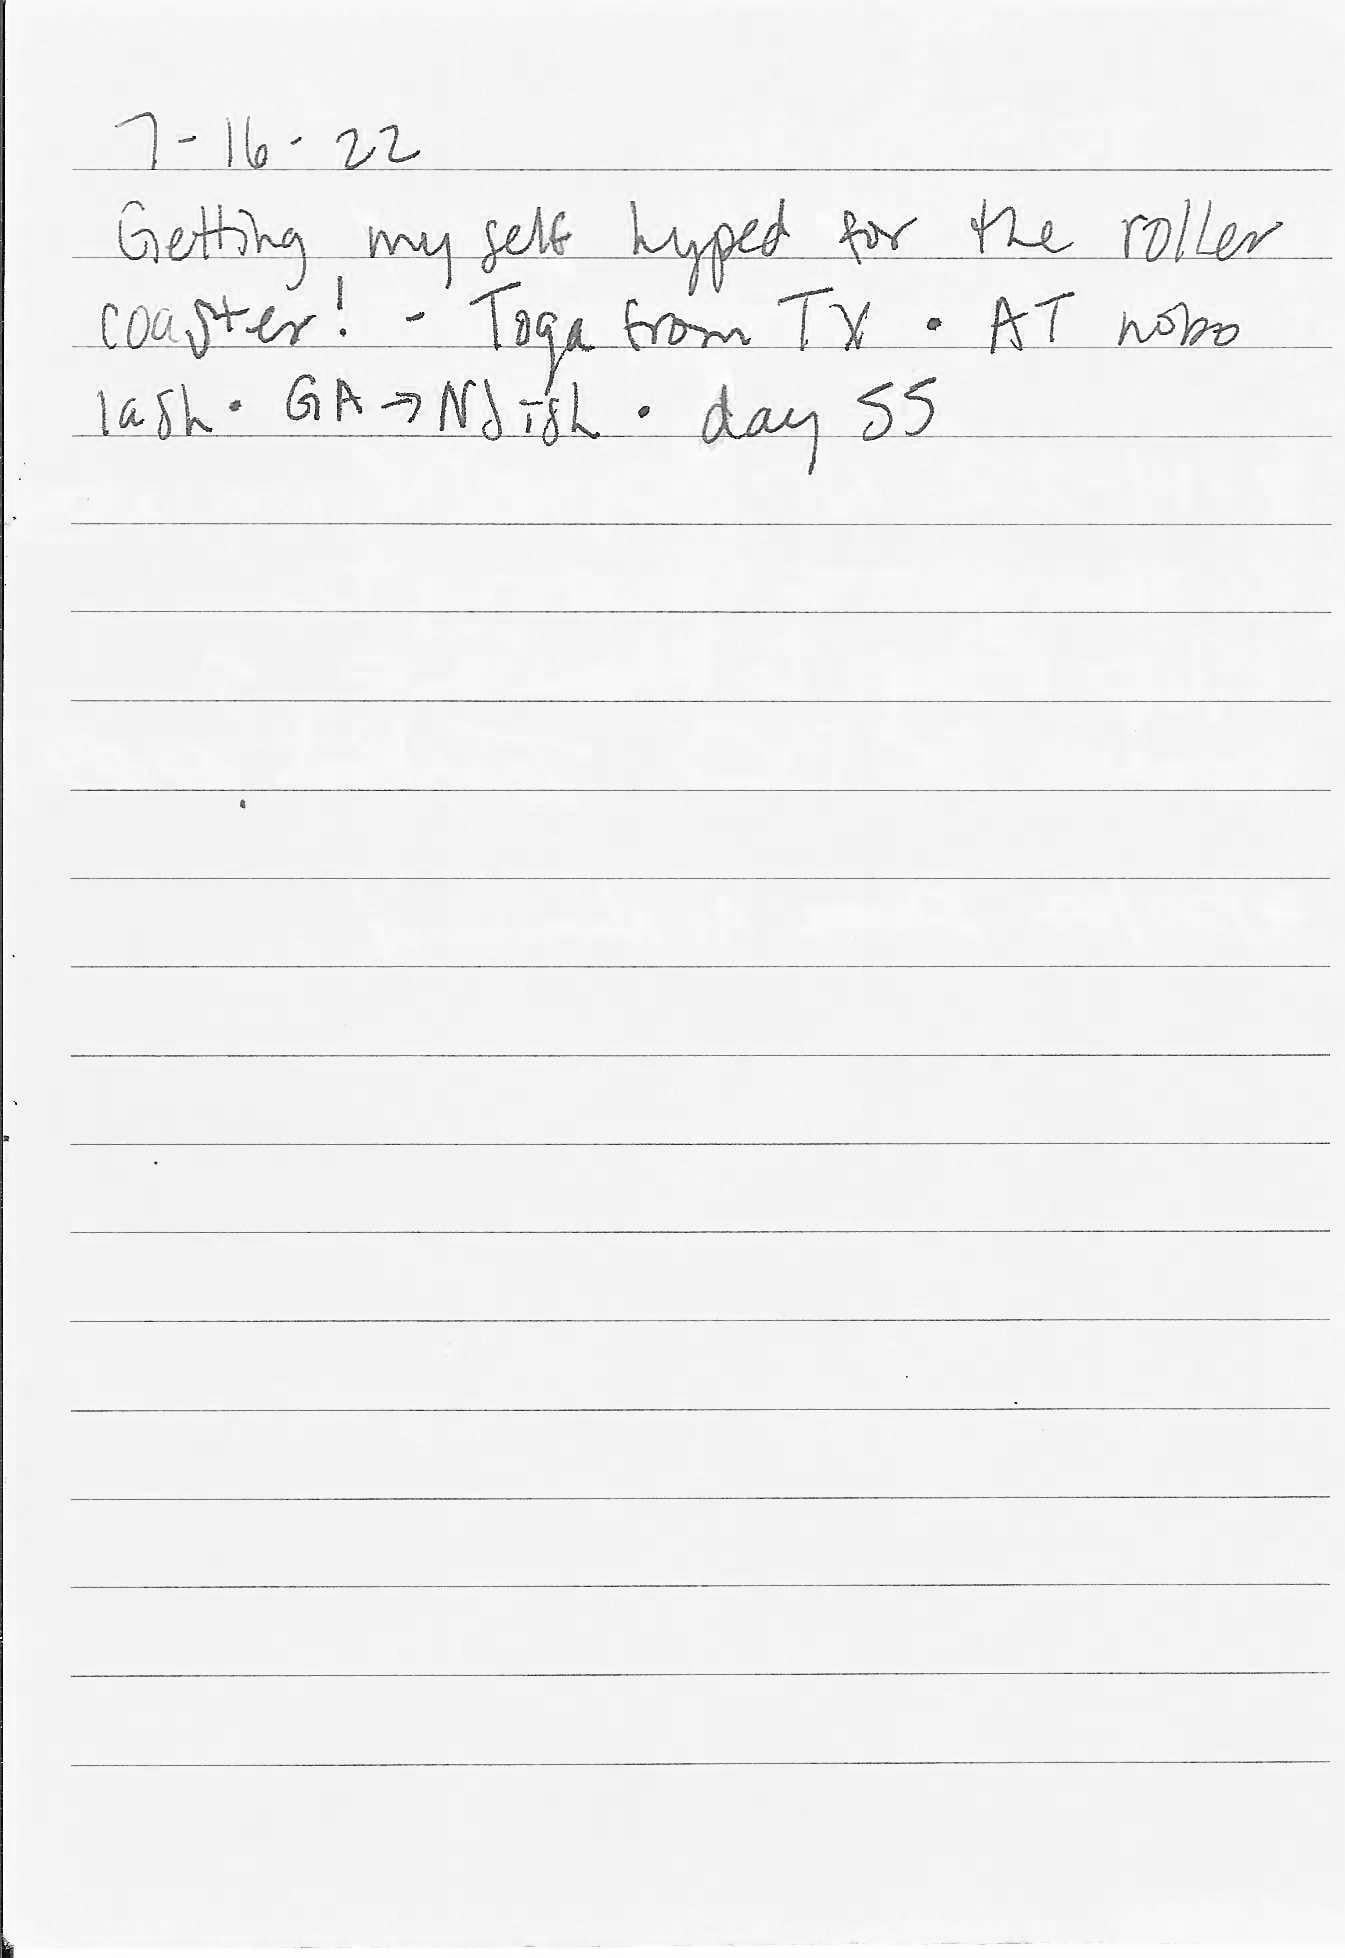 7-16-22
Getting myself hyped for the roller
coaster! - Toga from TX • AT nobo
lash • GA → NJish • day 55